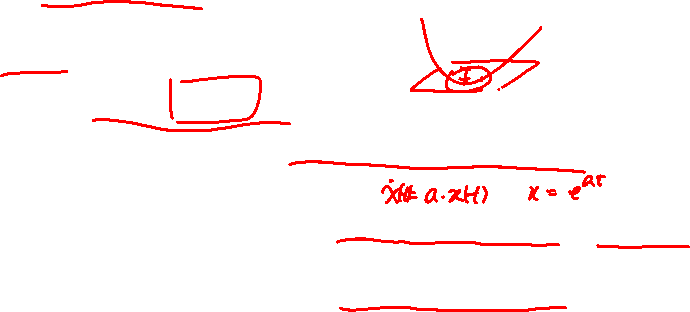 ẋ(t)= a·x(t) x = e^{at}